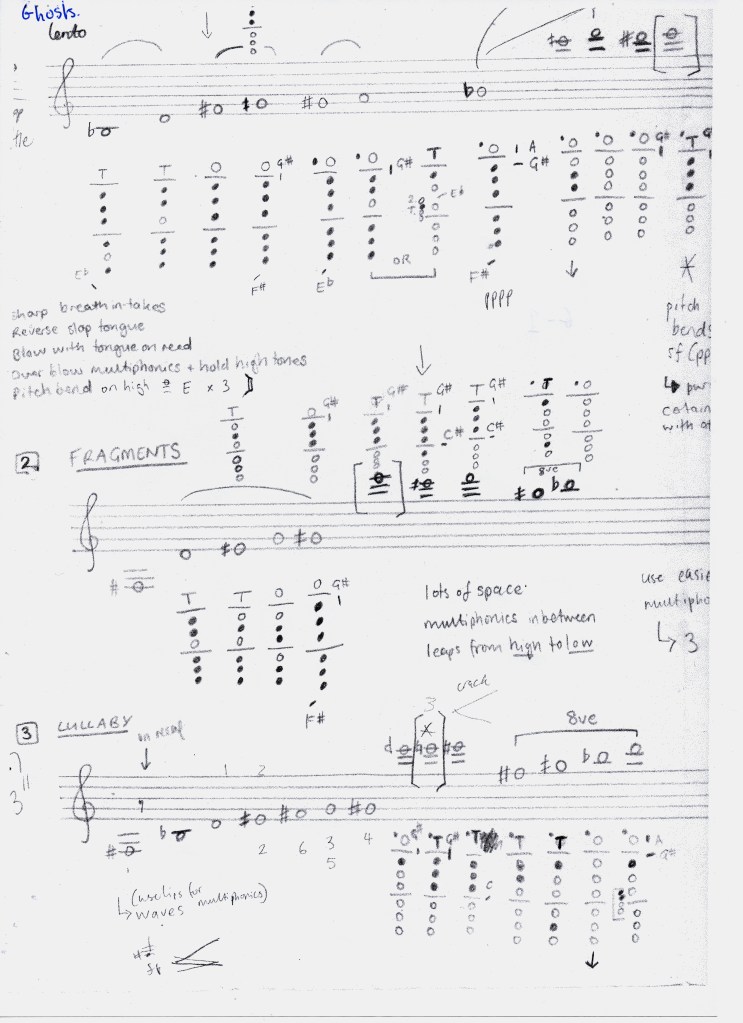 Ghosts.
Lento
T T O O G# O O G# T O A G# O O O G# T G#
Eb
OR
Eb F# Eb F#
pppp
sharp breath in-takes
Reverse slap tongue
Blow with tongue on reed
Over blow multiphonics + hold high tones
Pitch bend on high E x 3
pitch
bends
sf (pp
with
T O G# T G# T G# T G# T O
C# C#
8ve
2. FRAGMENTS
T T O O G#
F#
lots of space.
multiphonics in between
leaps from high to low
use easie
multipho
3
3 LULLABY
crack
3
8ve
1 2
2 6 3 4
5
O G# T G# T T T O O A
G#
C
(use lips for
waves multiphonics)